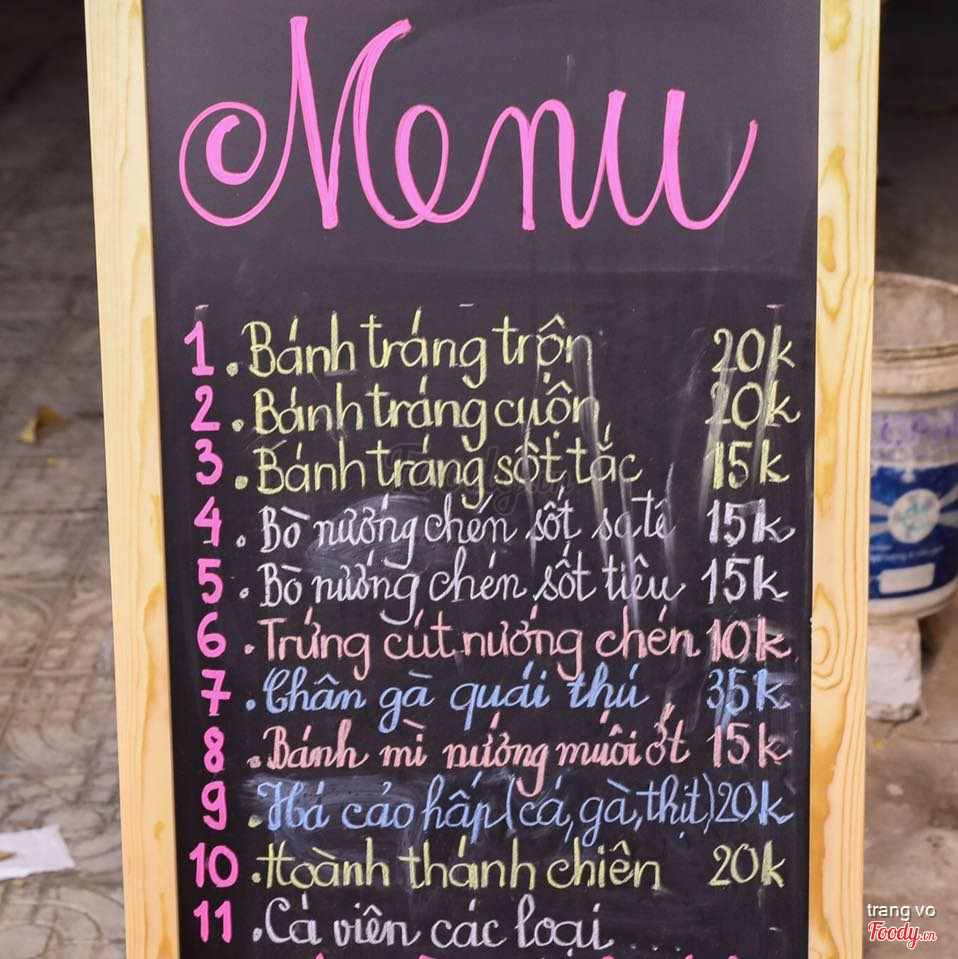 Menu
1. Bánh tráng trộn 20k
2. Bánh tráng cuộn 20k
3. Bánh tráng sốt tắc 15k
4. Bò nướng chén sốt sa tê 15k
5. Bò nướng chén sốt tiêu 15k
6. Trứng cút nướng chén 10k
7. Chân gà quái thú 35k
8. Bánh mì nướng muối ớt 15k
9. Há cảo hấp (cá, gà, thịt) 20k
10. Hoành thánh chiên 20k
11. Cá viên các loại ....
trang vo
Foody.vn